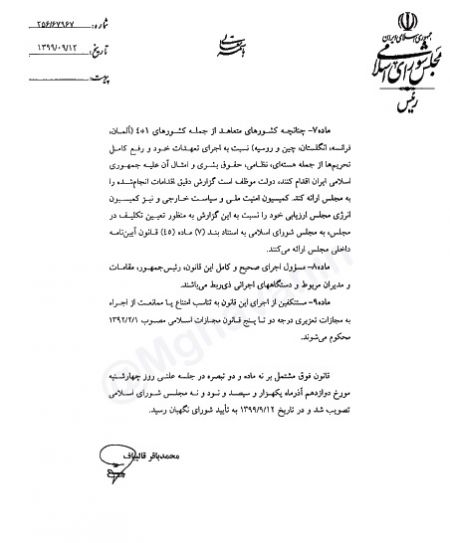 جمهوری اسلامی ایران
مجلس شورای اسلامی
رئیس
شماره: ۲۵۶/۶۷۹۶۷
تاریخ: ۱۳۹۹/۰۹/۱۲
پیوست:
ماده۷- چنانچه کشورهای متعاهد از جمله کشورهای ۱+٤ (آلمان،
فرانسه، انگلستان، چین و روسیه) نسبت به اجرای تعهدات خود و رفع کامل
تحریم‌ها از جمله هسته‌ای، نظامی، حقوق بشری و امثال آن علیه جمهوری
اسلامی ایران اقدام کنند، دولت موظف است گزارش دقیق اقدامات انجام‌شده را
به مجلس ارائه کند. کمیسیون امنیت ملی و سیاست خارجی و نیز کمیسیون
انرژی مجلس ارزیابی خود را نسبت به این گزارش به منظور تعیین تکلیف در
مجلس، به مجلس شورای اسلامی به استناد بند (۷) ماده (٤٥) قانون آیین‌نامه
داخلی مجلس ارائه می‌کنند.
ماده۸- مسؤول اجرای صحیح و کامل این قانون، رئیس‌جمهور، مقامات
و مدیران مربوط و دستگاههای اجرائی ذی‌ربط می‌باشند.
ماده۹- مستنکفین از اجرای این قانون به تناسب امتناع یا ممانعت از اجراء
به مجازات تعزیری درجه دو تا پنج قانون مجازات اسلامی مصوب ۱۳۹۲/۲/۱
محکوم می‌شوند.
قانون فوق مشتمل بر نه ماده و دو تبصره در جلسه علنی روز چهارشنبه
مورخ دوازدهم آذرماه یکهزار و سیصد و نود و نه مجلس شورای اسلامی
تصویب شد و در تاریخ ۱۳۹۹/۹/۱۲ به تأیید شورای نگهبان رسید.
محمدباقر قالیباف